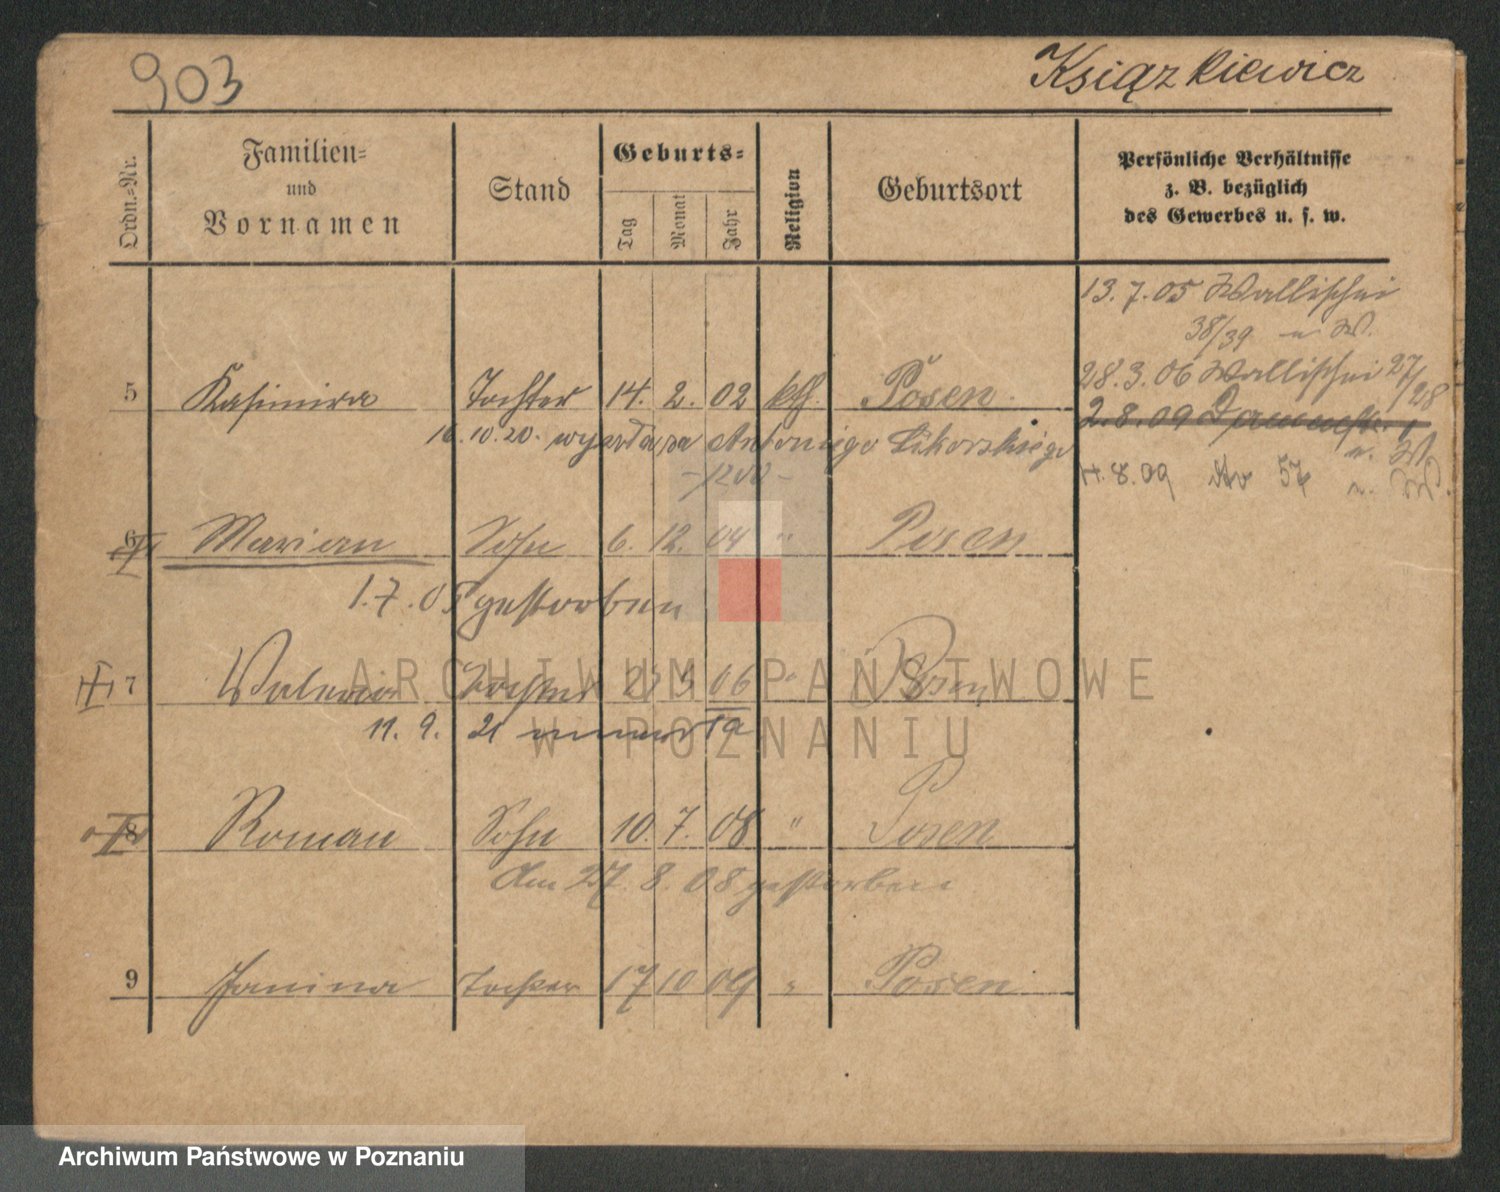 903
Książkiewicz
Ordn.-Nr.
Familien-
und
Vornamen
Stand
Geburts-
Tag
Monat
Jahr
Religion
Geburtsort
Persönliche Verhältnisse
z. B. bezüglich
des Gewerbes u. s. w.
13.7.05 Wallischei
38/39 n W.
28.3.06 Wallischei 27/28
5 Kasimira Tochter 14. 2. 02 kth. Posen.
2.8.09
n. W.
16.10.20. wyszła za Antoniego Sikorskiego
-1200-
4.8.09 57 n. W.
6 Marian Sohn 6. 12. 04 " Posen
1.7.05 gestorben
7 Tochter 06 " Posen
11. 9. 21
8 Roman Sohn 10. 7. 08 " Posen
Am 27. 8. 08 gestorben
9 Janina Tochter 17 10 09 " Posen
ARCHIWUM PAŃSTWOWE
W POZNANIU
Archiwum Państwowe w Poznaniu